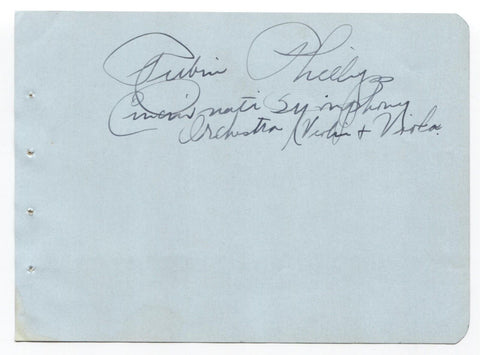 Rubin Phillips
Cincinnati Symphony
Orchestra Violin + Viola